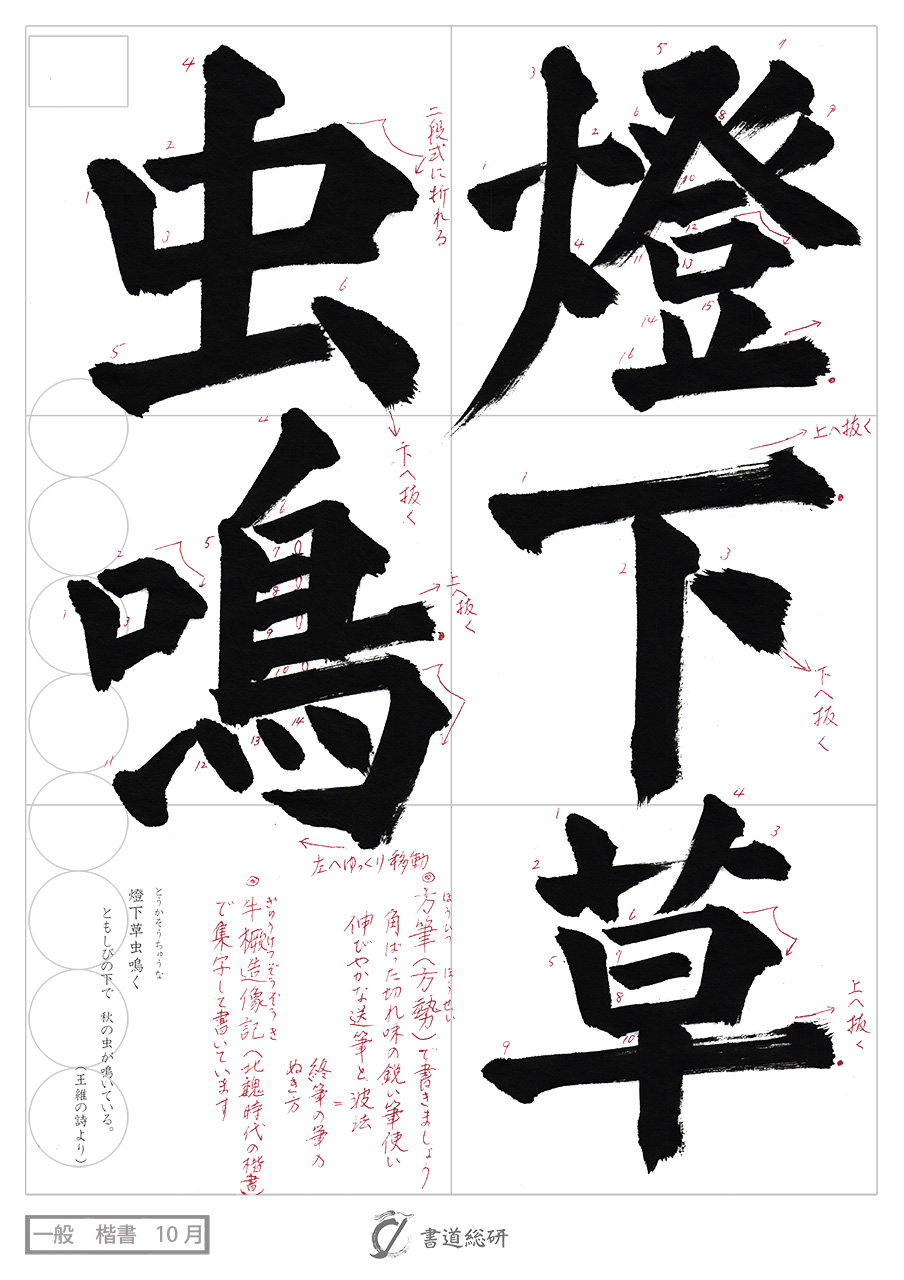 燈下草
虫鳴
二段式に折れる
下へ抜く
上へ抜く
上へ抜く
下へ抜く
上へ抜く
左へゆっくり移動
ほうひつ ほうせい
方筆(方勢)で書きましょう
角ばった切れ味の鋭い筆使い
伸びやかな送筆と波法
=
終筆の筆の
ぬき方
ぎゅうけつぞうぞうき
牛橛造像記(北魏時代の楷書)
で集字して書いています
とうかそうちゅうな
燈下草虫鳴く
ともしびの下で 秋の虫が鳴いている。
(王維の詩より)
一般 楷書 10月
書道総研